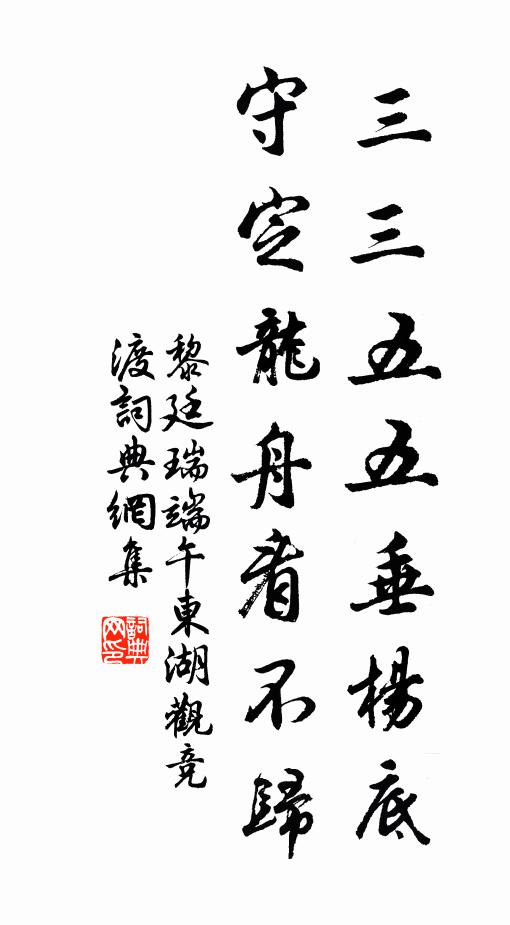 三三五五垂楊底
守定龍舟看不歸
黎廷瑞端午東湖觀競
渡詞典網集
詞典网印